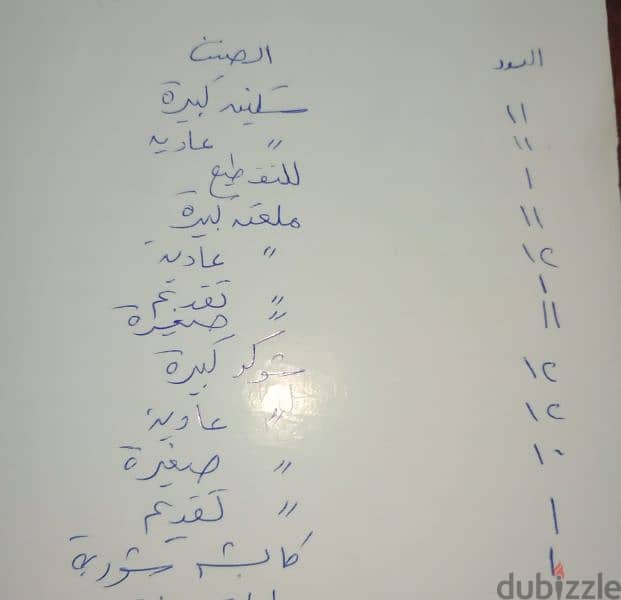 العدد الصنف
١١ سكينه كبيرة
١١ " عاديه
١ للتقطيع
١١ ملعقه كبيرة
١٢ " عادية
١ " تقديم
١١ " صغيرة
١٢ شوكه كبيرة
١٢ " عادية
١٠ " صغيرة
١ " تقديم
١ كابشه شوربة
dubizzle